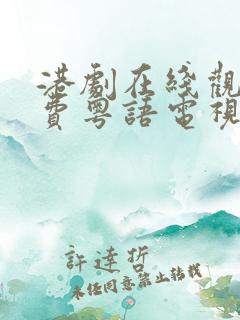 港劇在綫觀
費粵語電視
許達哲
未經同意禁止轉載